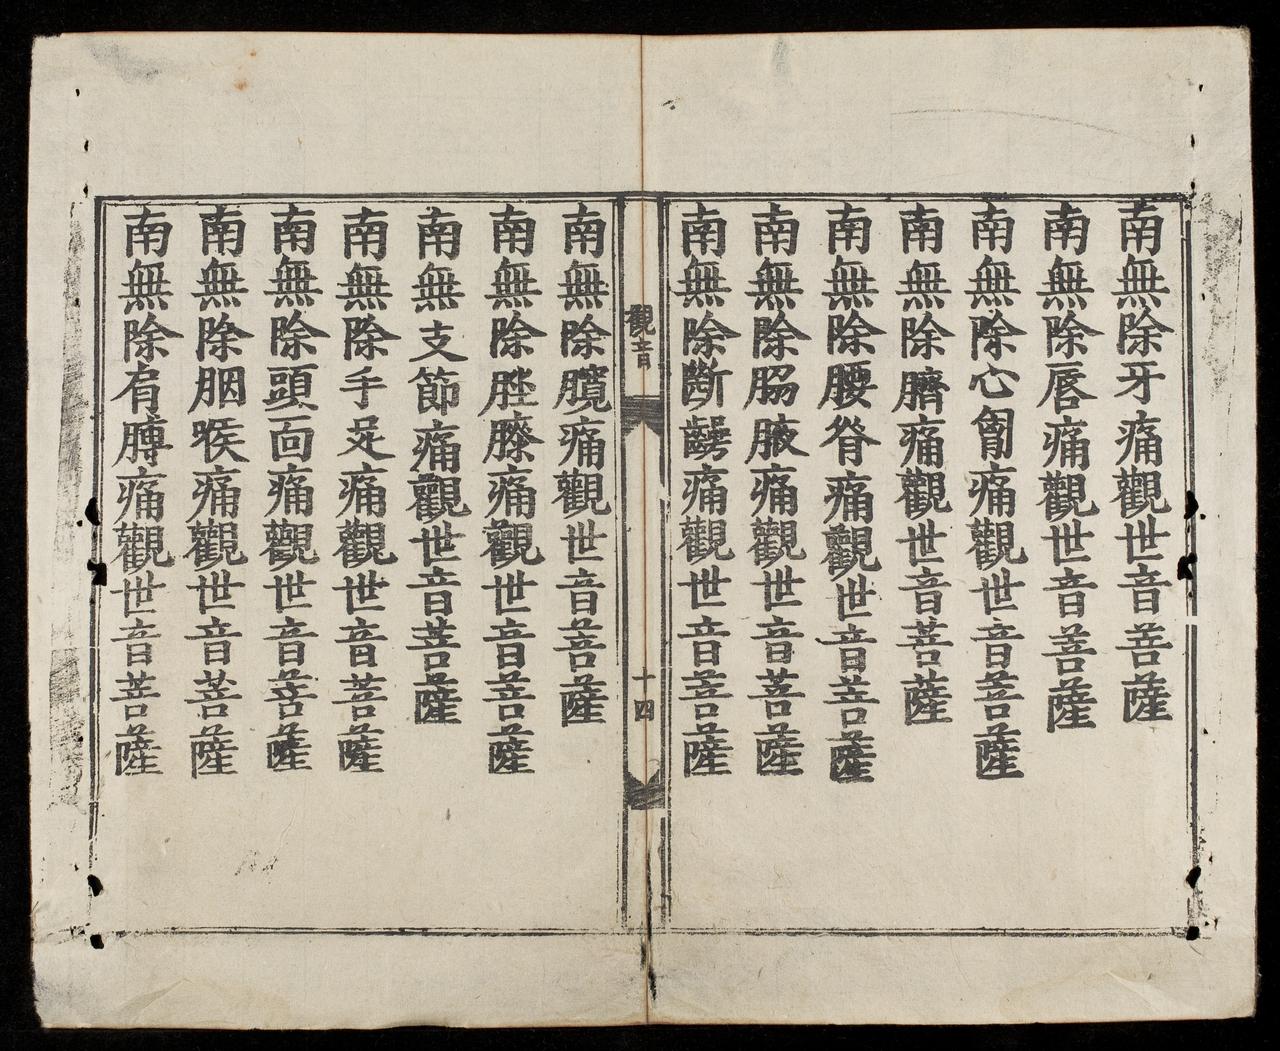 南無除牙痛觀世音菩薩
南無除唇痛觀世音菩薩
南無除心胷痛觀世音菩薩
南無除臍痛觀世音菩薩
南無除腰脊痛觀世音菩薩
南無除脇腋痛觀世音菩薩
南無除斷齶痛觀世音菩薩
觀音
十四
南無除臗痛觀世音菩薩
南無除䏶膝痛觀世音菩薩
南無支節痛觀世音菩薩
南無除手足痛觀世音菩薩
南無除頭面痛觀世音菩薩
南無除胭喉痛觀世音菩薩
南無除肩膊痛觀世音菩薩